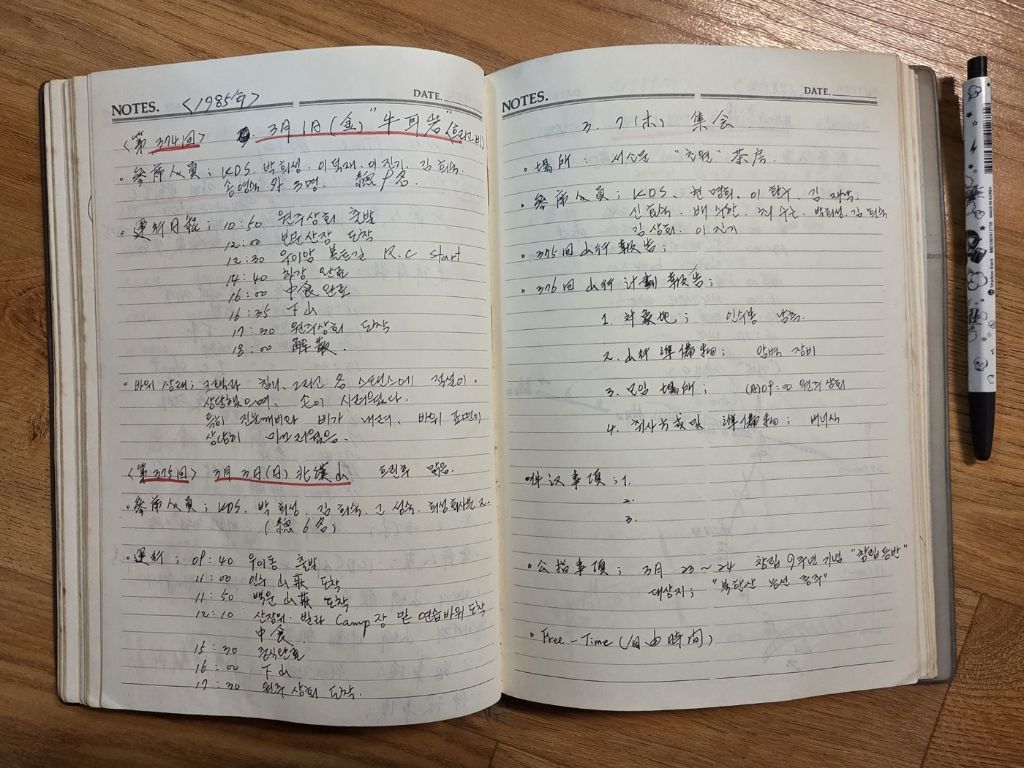 NOTES. <1985年> DATE.
<第 374回> 3月 1日 (金) "牛耳岩"
• 參席人員; KDS. 박희성. 이 김 희숙.
3명. 總 9名
• 運行日程; 10:50 원주상회 출발
12:00 보문산장 도착
12:30 우이암 R.C start
14:40 하강 완료
16:00 中食 완료
16:35 下山
17:30 원주상회 도착
18:00 解散.
• 바위 상태; 그리고 적설이
상당했으며, 손이 시려웠다.
특히 진눈깨비와 비가 내려, 바위 표면이
상당히 미끄러웠음.
<第 375回> 3月 3日(日) 北漢山 흐린후 맑음.
• 參席人員; KDS. 박 희성. 김 희숙. 고 성숙.
(總 6名)
• 運行; 09:40 우이동 출발
11:00 인수山莊 도착
11:50 백운山莊 도착
12:10 산장위. 빌라 Camp장 밑 연습바위 도착
中食
15:30 완료
16:00 下山
17:30 원주상회 도착.
NOTES. DATE.
3. 7 (木) 集会
• 場所; 서소문 "초원" 茶房
• 參席人員; KDS. 이 김
신 배 박희성. 김 희숙
김 상희. 이 진기
• 375回 山行 報告;
• 376回 山行 計劃 報告;
1. 対象地; 인수봉
2. 山行 準備物; 암벽 장비
3. 모임 場所; (日) 09:00 원주상회
4. 準備物; 버너식
件议事項; 1.
2.
3.
• 公指事項; 3月 23~24 창립 9주년 기념 "창립등반"
대상지; "북한산 능선 종주"
• Free-Time (自由時間)